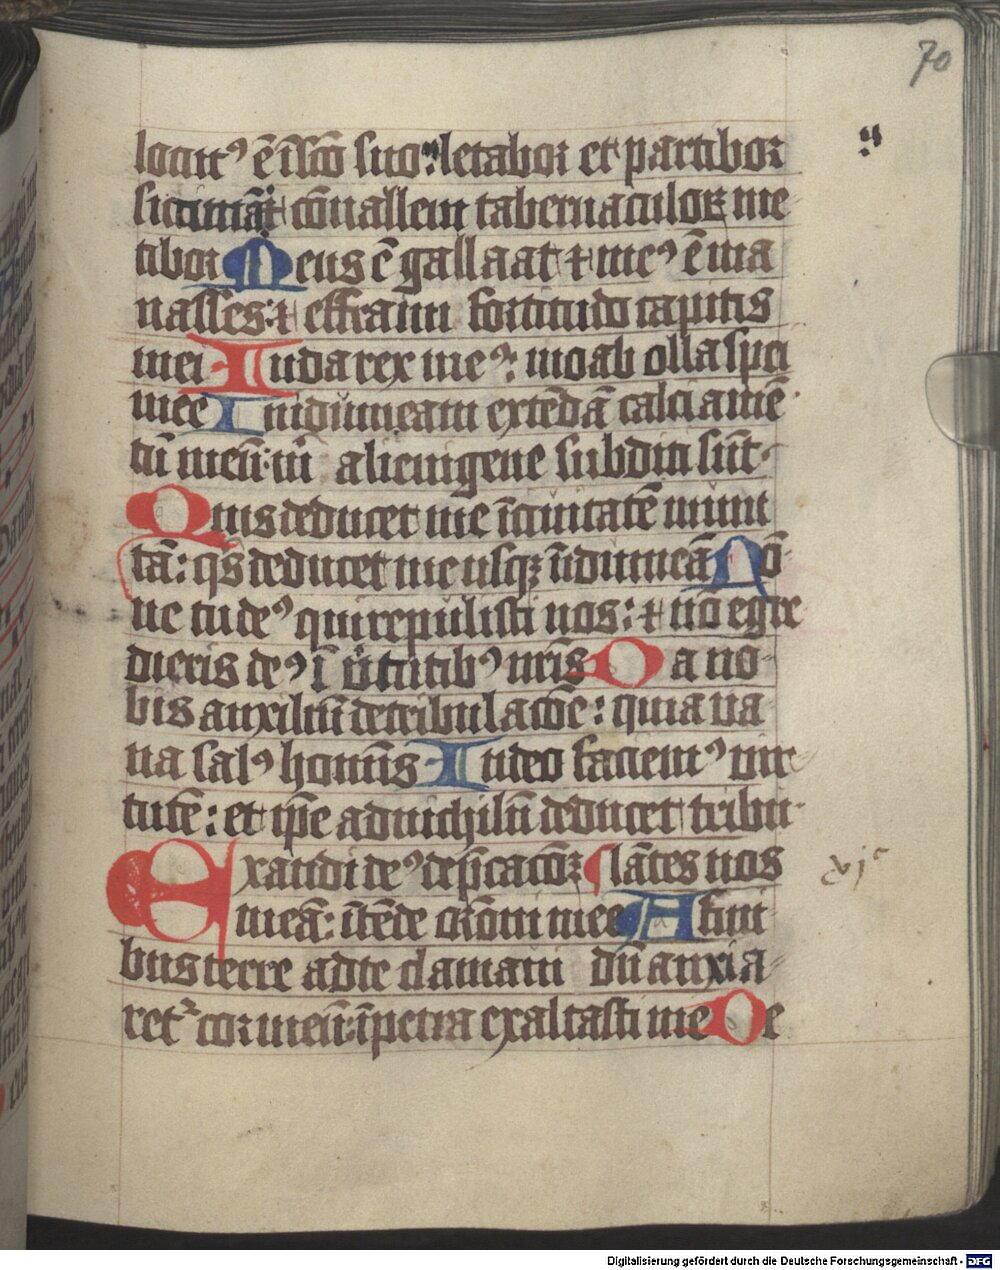 70
locut⁹ ē ī sc̄o suo: letabor et partibor
siccimā: ⁊ cōuallem tabernaculoꝝ me
tibor Meus ē gallaat ⁊ me⁹ ē ma
nasses: ⁊ effraim fortitudo capitis
mei Iuda rex me⁹: moab olla spei
mee In idumeam extēdā calciamē
tū meū: m̄ alienigene subditi sūt
Quis deducet me ī ciuitatē muni
tā: q̄s deducet me usqꝫ ī idumeā No
ne tu de⁹ qui repulisti nos: ⁊ nō egre
dieris de⁹ ī v̄tutib⁹ nr̄is Da no
bis auxiliū de tribulacōe: quia ua
na sal⁹ hominis In deo faciem⁹ vir
tutē: et ip̄e ad nichilū deducet tribu
Exaudi de⁹ dep̄cacōꝫ ¶ lātes nos
meā: ītēde or̄oni mee A fini
bus terre ad te clamaui dū anxia
retᷣ cor meū: ī petra exaltasti me De
Digitalisierung gefördert durch die Deutsche Forschungsgemeinschaft - DFG